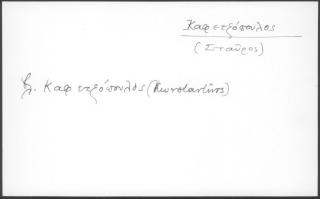 Καφετζόπουλος
(Σταῦρος)
βλ. Καφετζόπουλος (Κωνσταντῖνος)